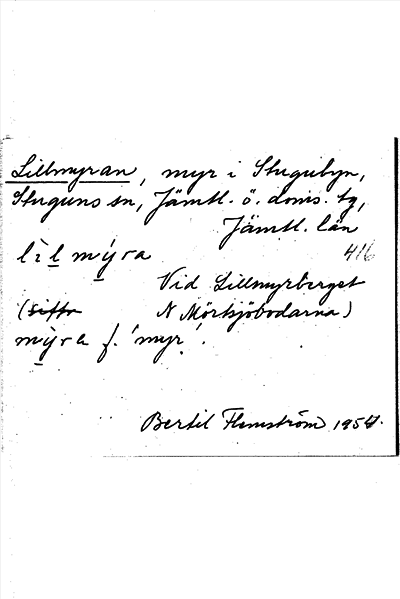 Lillmyran, myr i Stugubyn,
Stuguns sn, Jämtl. ö. doms. tg,
Jämtl. län
lìl mýra 416
Vid Lillmyrberget
(siffr N Mörtsjöbodarna)
mýra f. 'myr'.
Bertil Flemström 1957.